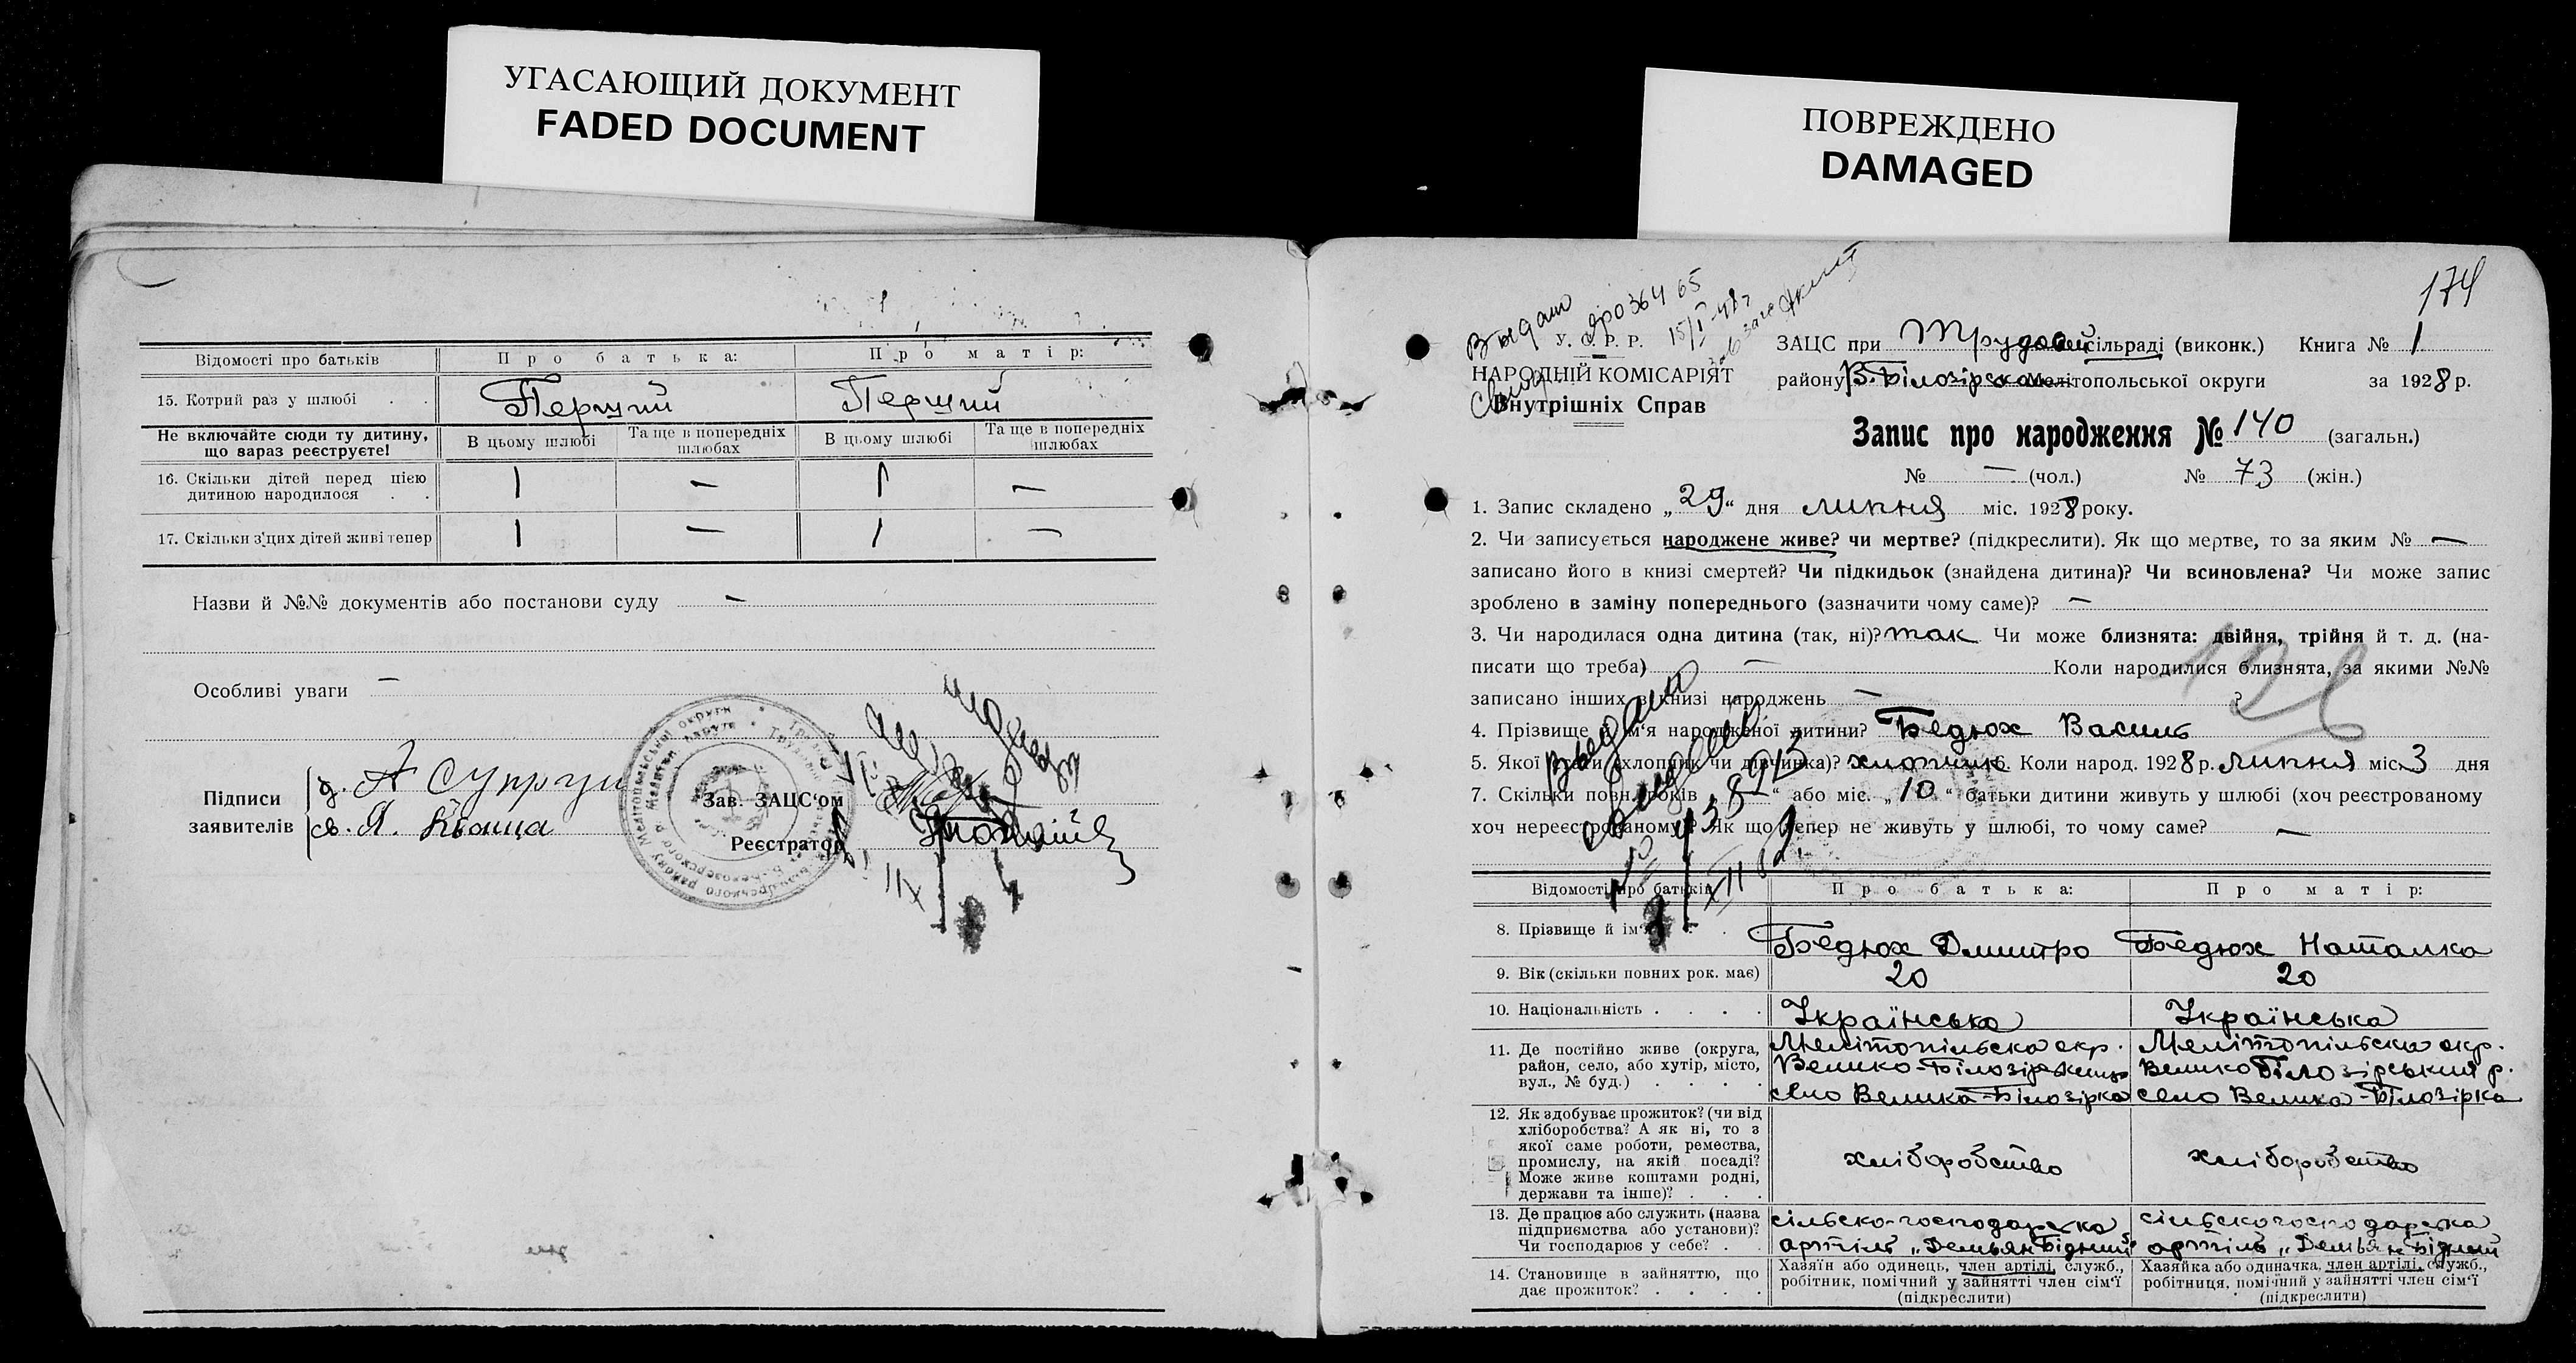 УГАСАЮЩИЙ ДОКУМЕНТ
FADED DOCUMENT
Відомості про батьків
Про батька:
Про матір:
15. Котрий раз у шлюбі . .
Перший
Перший
Не включайте сюди ту дитину, що вараз реєструєте!
В цьому шлюбі
Та ще в попередніх шлюбах
В цьому шлюбі
Та ще в попередніх шлюбах
16. Скільки дітей перед цією дитиною народилося . .
1
—
1
—
17. Скільки з'цих дітей живі тепер
1
—
1
—
Назви й №№ документів або постанови суду —
Особливі уваги —
Підписи заявителів
А Супрун
св. Я. Кваша
Зав. ЗАЦС'ом
Реєстратор
ПОВРЕЖДЕНО
DAMAGED
174
Выдано
У. С. Р. Р.
НАРОДНІЙ КОМІСАРІЯТ
Внутрішніх Справ
ЗАЦС при Трудовій сільраді (виконк.) Книга № 1
району В.-Білозірска Мелітопольської округи за 1928 р.
Запис про народження № 140 (загальн.)
№ — (чол.) № 73 (жін.)
1. Запис складено „29" дня липня міс. 1928 року.
2. Чи записується народжене живе? чи мертве? (підкреслити). Як що мертве, то за яким № —
записано його в книзі смертей? Чи підкидьок (знайдена дитина)? Чи всиновлена? Чи може запис
зроблено в заміну попереднього (зазначити чому саме)? —
3. Чи народилася одна дитина (так, ні)? так Чи може близнята: двійня, трійня й т. д. (на-
писати що треба) — Коли народилися близнята, за якими №№
записано інших в книзі народжень — ?
126
4. Прізвище й ім'я народженої дитини? Бедюх Василь
5. Якої статі (хлопчик чи дівчинка)? хлопчик 6. Коли народ. 1928 р. липня міс. 3 дня
7. Скільки повн. років „—" або міс. „10" батьки дитини живуть у шлюбі (хоч реєстрованому
хоч нереєстрованому)? Як що тепер не живуть у шлюбі, то чому саме? —
Выдано
Відомості про батьків
Про батька:
Про матір:
8. Прізвище й ім'я . .
Бедюх Дмитро
Бедюх Наталка
9. Вік (скільки повних рок. має)
20
20
10. Національність . . . .
Українська
Українська
11. Де постійно живе (округа, район, село, або хутір, місто, вул., № буд.) . . . .
Мелітопільска окр.
Велико-Білозірський
село Велика-Білозірка
Мелітопільска окр.
Велико Білозірський р.
село Велика-Білозірка
12. Як здобуває прожиток? (чи від хліборобства? А як ні, то з якої саме роботи, ремества, промислу, на якій посаді? Може живе коштами родні, держави та інше)? . . .
хліборобство
хліборобство
13. Де працює або служить (назва підприємства або установи)? Чи господарює у себе? . .
сільско-господарска
артіль „Демьян Бідний"
сільскогосподарска
артіль „Демьян Бідний
14. Становище в зайняттю, що дає прожиток? . . . .
Хазяїн або одинець, член артілі, служб., робітник, помічний у зайнятті член сім'ї (підкреслити)
Хазяйка або одиначка, член артілі, служб., робітниця, помічний у зайнятті член сім'ї (підкреслити)